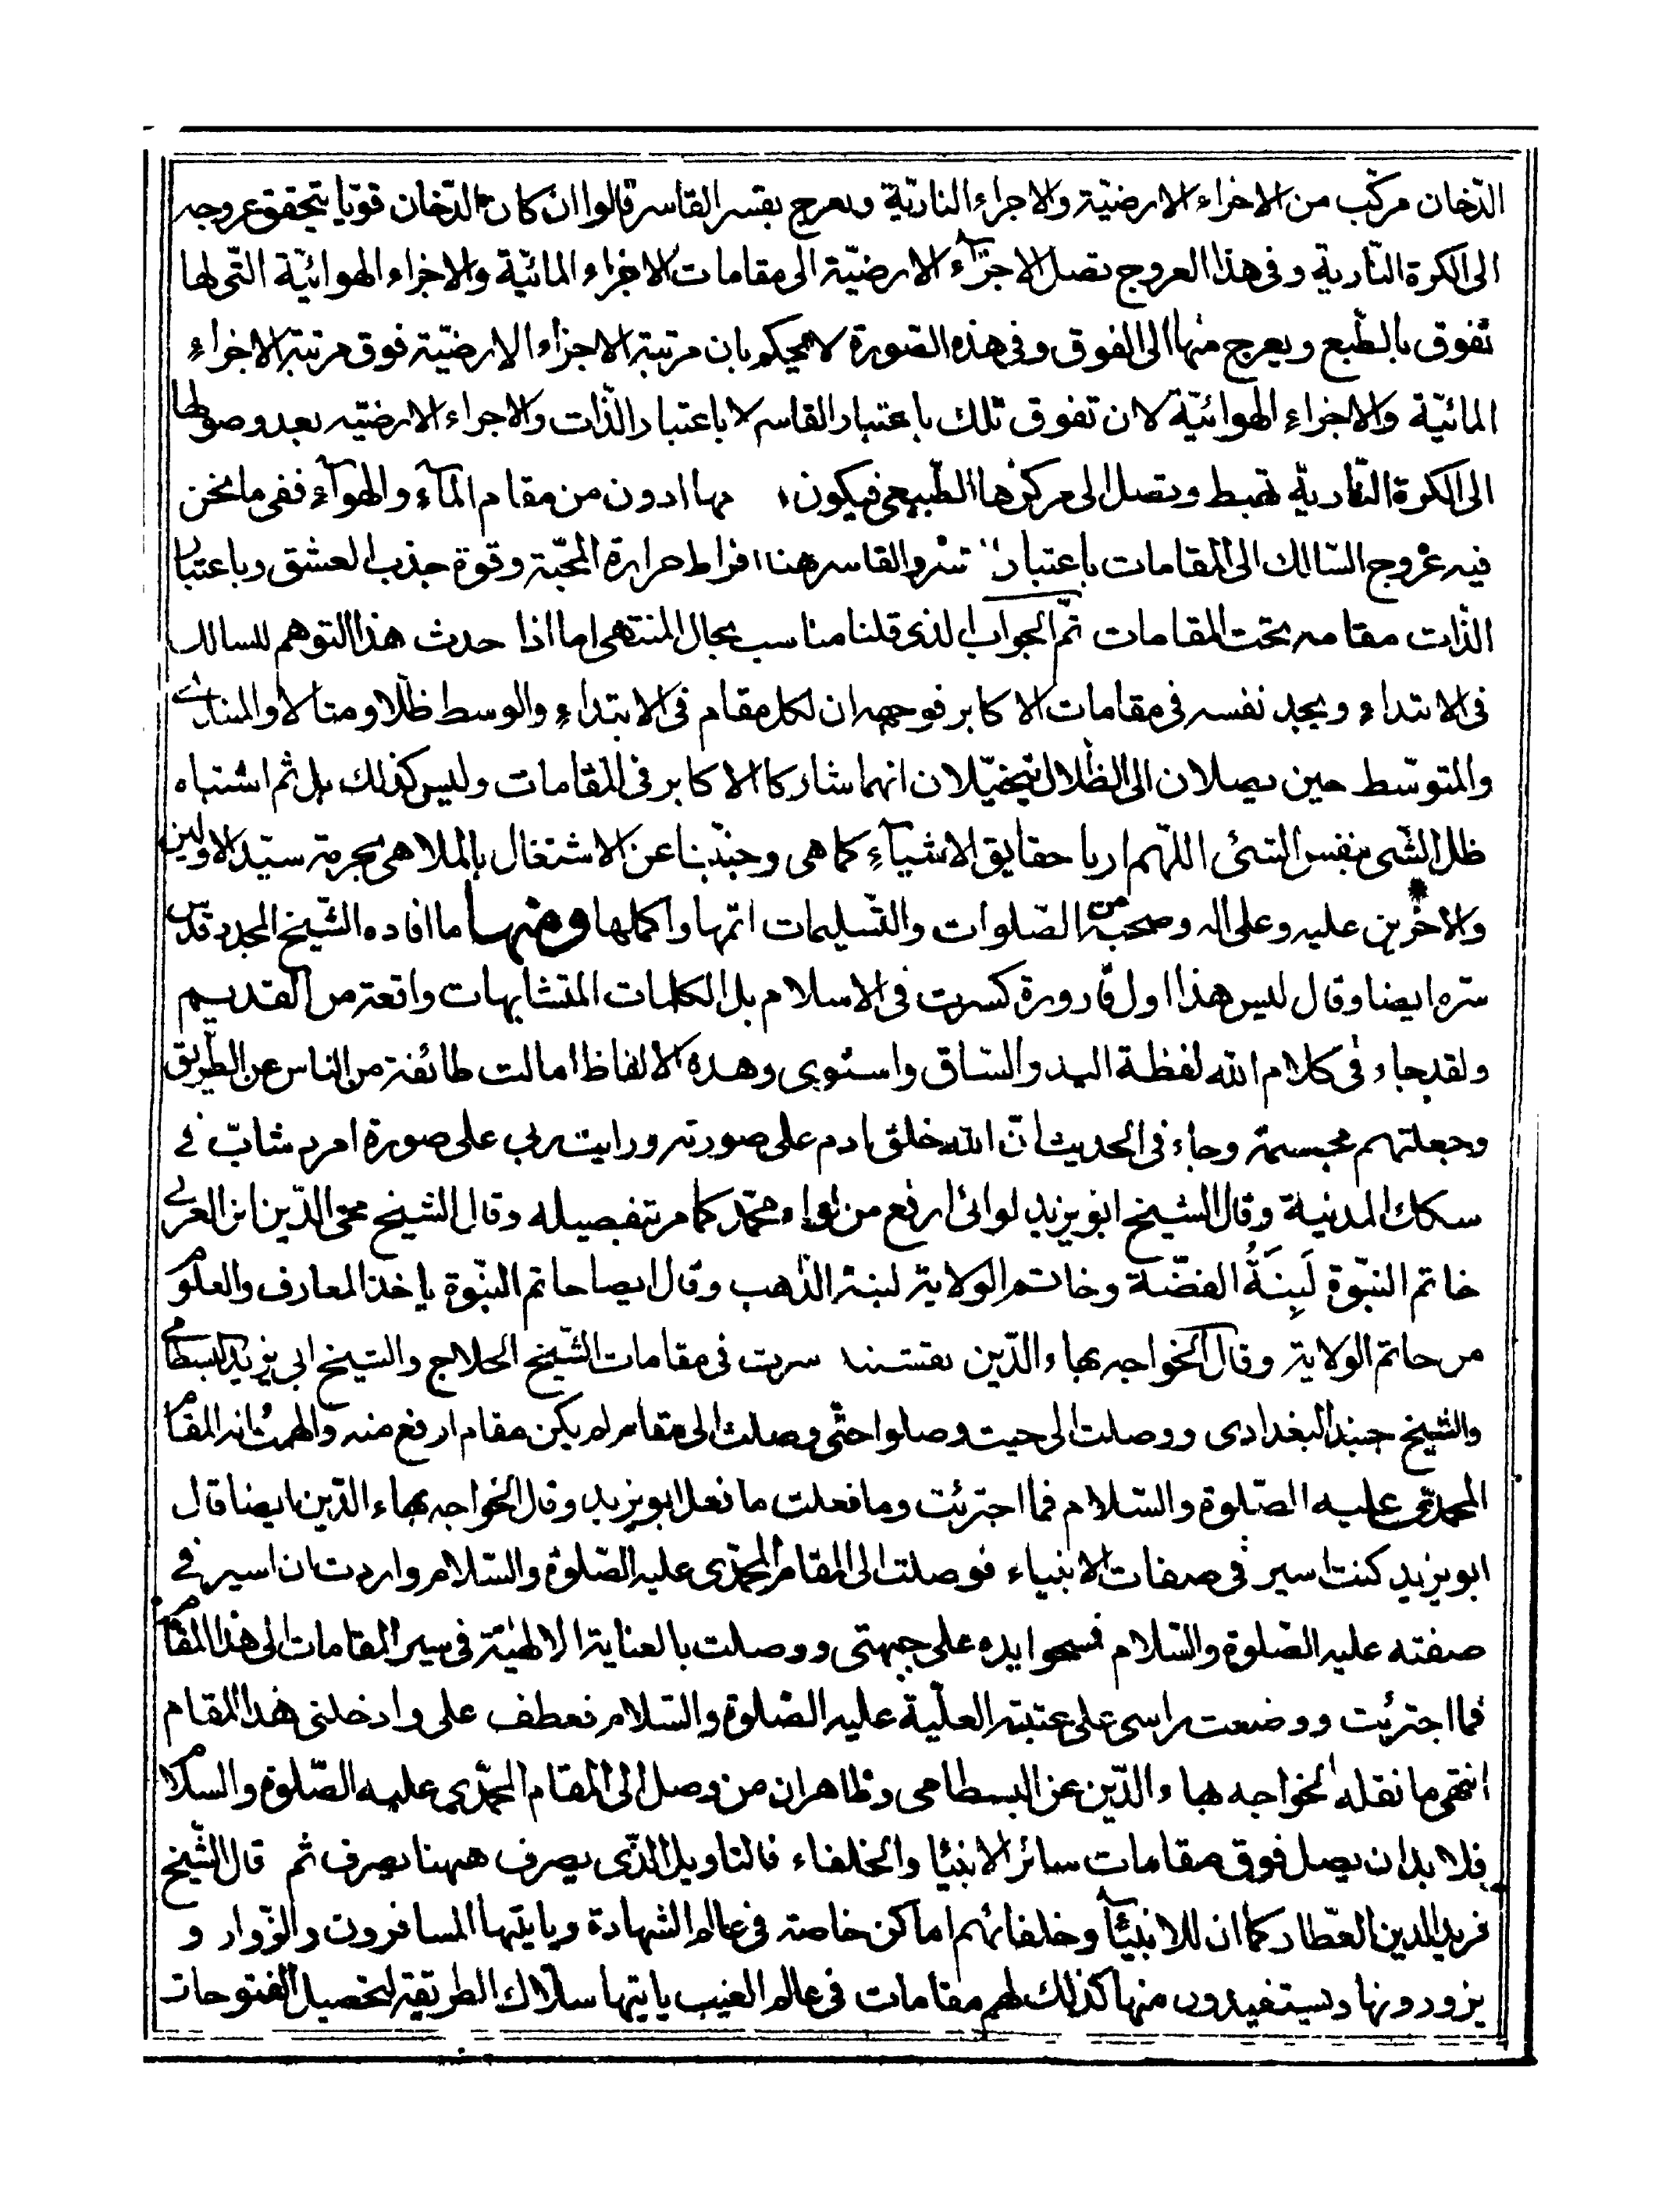 الدّخان مركّب من الاجزاء الارضيّة والاجزاء الناريّة ويعرج بقسر القاسر قالوا ان كان الدّخان قويّا يتحقق عروجه
الى الكرة النّارية وفى هذا العروج تصل الاجزاء الارضيّة الى مقامات الاجزاء المائيّة والاجزاء الهوائيّة التّى لها
تفوق بالطّبع ويعرج منها الى الفوق وفى هذه الصّورة لا يحكم بان مرتبة الاجزاء الارضيّة فوق مرتبة الاجزاء
المائيّة والاجزاء الهوائيّة لان تفوق تلك باعتبار القاسر لا باعتبار الذّات والاجراء الارضيّه بعد وصولها
الى الكرة النّاريّة تهبط وتصل الى مركزها الطّبيعى فيكون ادون من مقام المآء والهوآء ففى ما نحن
فيه عروج السّالك الى المقامات باعتبار القسر والقاسر هنا افراط حرارة المحبّة وقوة جذب العشق وباعتبار
الذات مقامه تحت المقامات ثمّ الجواب الذى قلنا مناسب بحال المنتهى اما اذا حدث هذا التوهم للسالك
فى الابتداء ويجد نفسه فى مقامات الاكابر فوجهه ان لكل مقام فى الابتداء والوسط ظلّا ومثالا والمبتدى
والمتوسّط حين يصلان الى الظّلال يتخيّلان انهما شاركا الاكابر فى المقامات وليس كذلك بل ثم اشتباه
ظل الشّى بنفس الشئ اللّهم ارنا حقايق الاشيآء كما هى وجنّبنا عن الاشتغال بالملاهى بحرمة سيّد الاولين
والاخرين عليه وعلى اله وصحبه من الصّلوات والتّسليمات اتمّها واكملها ومنها ما افاده الشّيخ المجدد قدّس
سرّه ايضا وقال ليس هذا اول قارورة كسرت فى الاسلام بل الكلمات المتشابهات واقعة من القديم
ولقد جاء فى كلام الله لفظة اليد والسّاق واستوى وهذه الالفاظ امالت طائفة من الناس عن الطّريق
وجعلتهم مجسمة وجاء فى الحديث انّ الله خلق ادم على صورته ورايت ربى على صورة امرد شابّ فى
سكك المدنية وقال الشيخ ابو يزيد لوائى ارفع من لواء محمّد كما مر تفصيله وقال الشيخ محى الدّين ابن العربى
خاتم النبّوة لَبِنَةُ الفضّة وخاتم الولاية لبنة الذّهب وقال ايضا خاتم النبّوة ياخذ المعارف والعلوم
من خاتم الولاية وقال الخواجه بهاء الدّين نقشبند سرت فى مقامات الشّيخ الحلاج والشيخ ابى يزيد البسطامى
والشيخ جنيد البغدادى ووصلت الى حيث وصلوا حتّى وصلت الى مقام لم يكن مقام ارفع منه والهمت انه المقام
المحمدّى عليه الصّلوة والسّلام فما اجترئت وما فعلت ما فعل ابو يزيد وقال الخواجه بهاء الدّين ايضا قال
ابو يزيد كنت اسير فى صفات الانبياء فوصلت الى المقام المحمّدى عليه الصّلوة والسّلام واردت ان اسير فى
صفته عليه الصّلوة والسّلام فسمحوا يده على جبهتى ووصلت بالعناية الالهيّة فى سير المقامات الى هذا المقام
فما اجترئت ووضعت راسى على عتبته العلّية عليه الصّلوة والسّلام فعطف على وادخلنى هذا المقام
انتهى ما نقله الخواجه بهاء الدّين عن البسطامى وظاهر ان من وصل الى المقام المحمّدي عليه الصّلوة والسّلام
فلا بد ان يصل فوق مقامات سائر الانبيا والخلفاء فالتاويل الذّى يصرف ههنا يصرف ثم قال الشّيخ
فريد الدين العطّار كما ان للانبيآ وخلفائهم اماكن خاصة فى عالم الشهادة وياتيها المسافرون والزّوار و
يزورونها ويستفيدون منها كذلك لهم مقامات فى عالم الغيب ياتيها سلّاك الطريقة لتحصيل الفتوحات